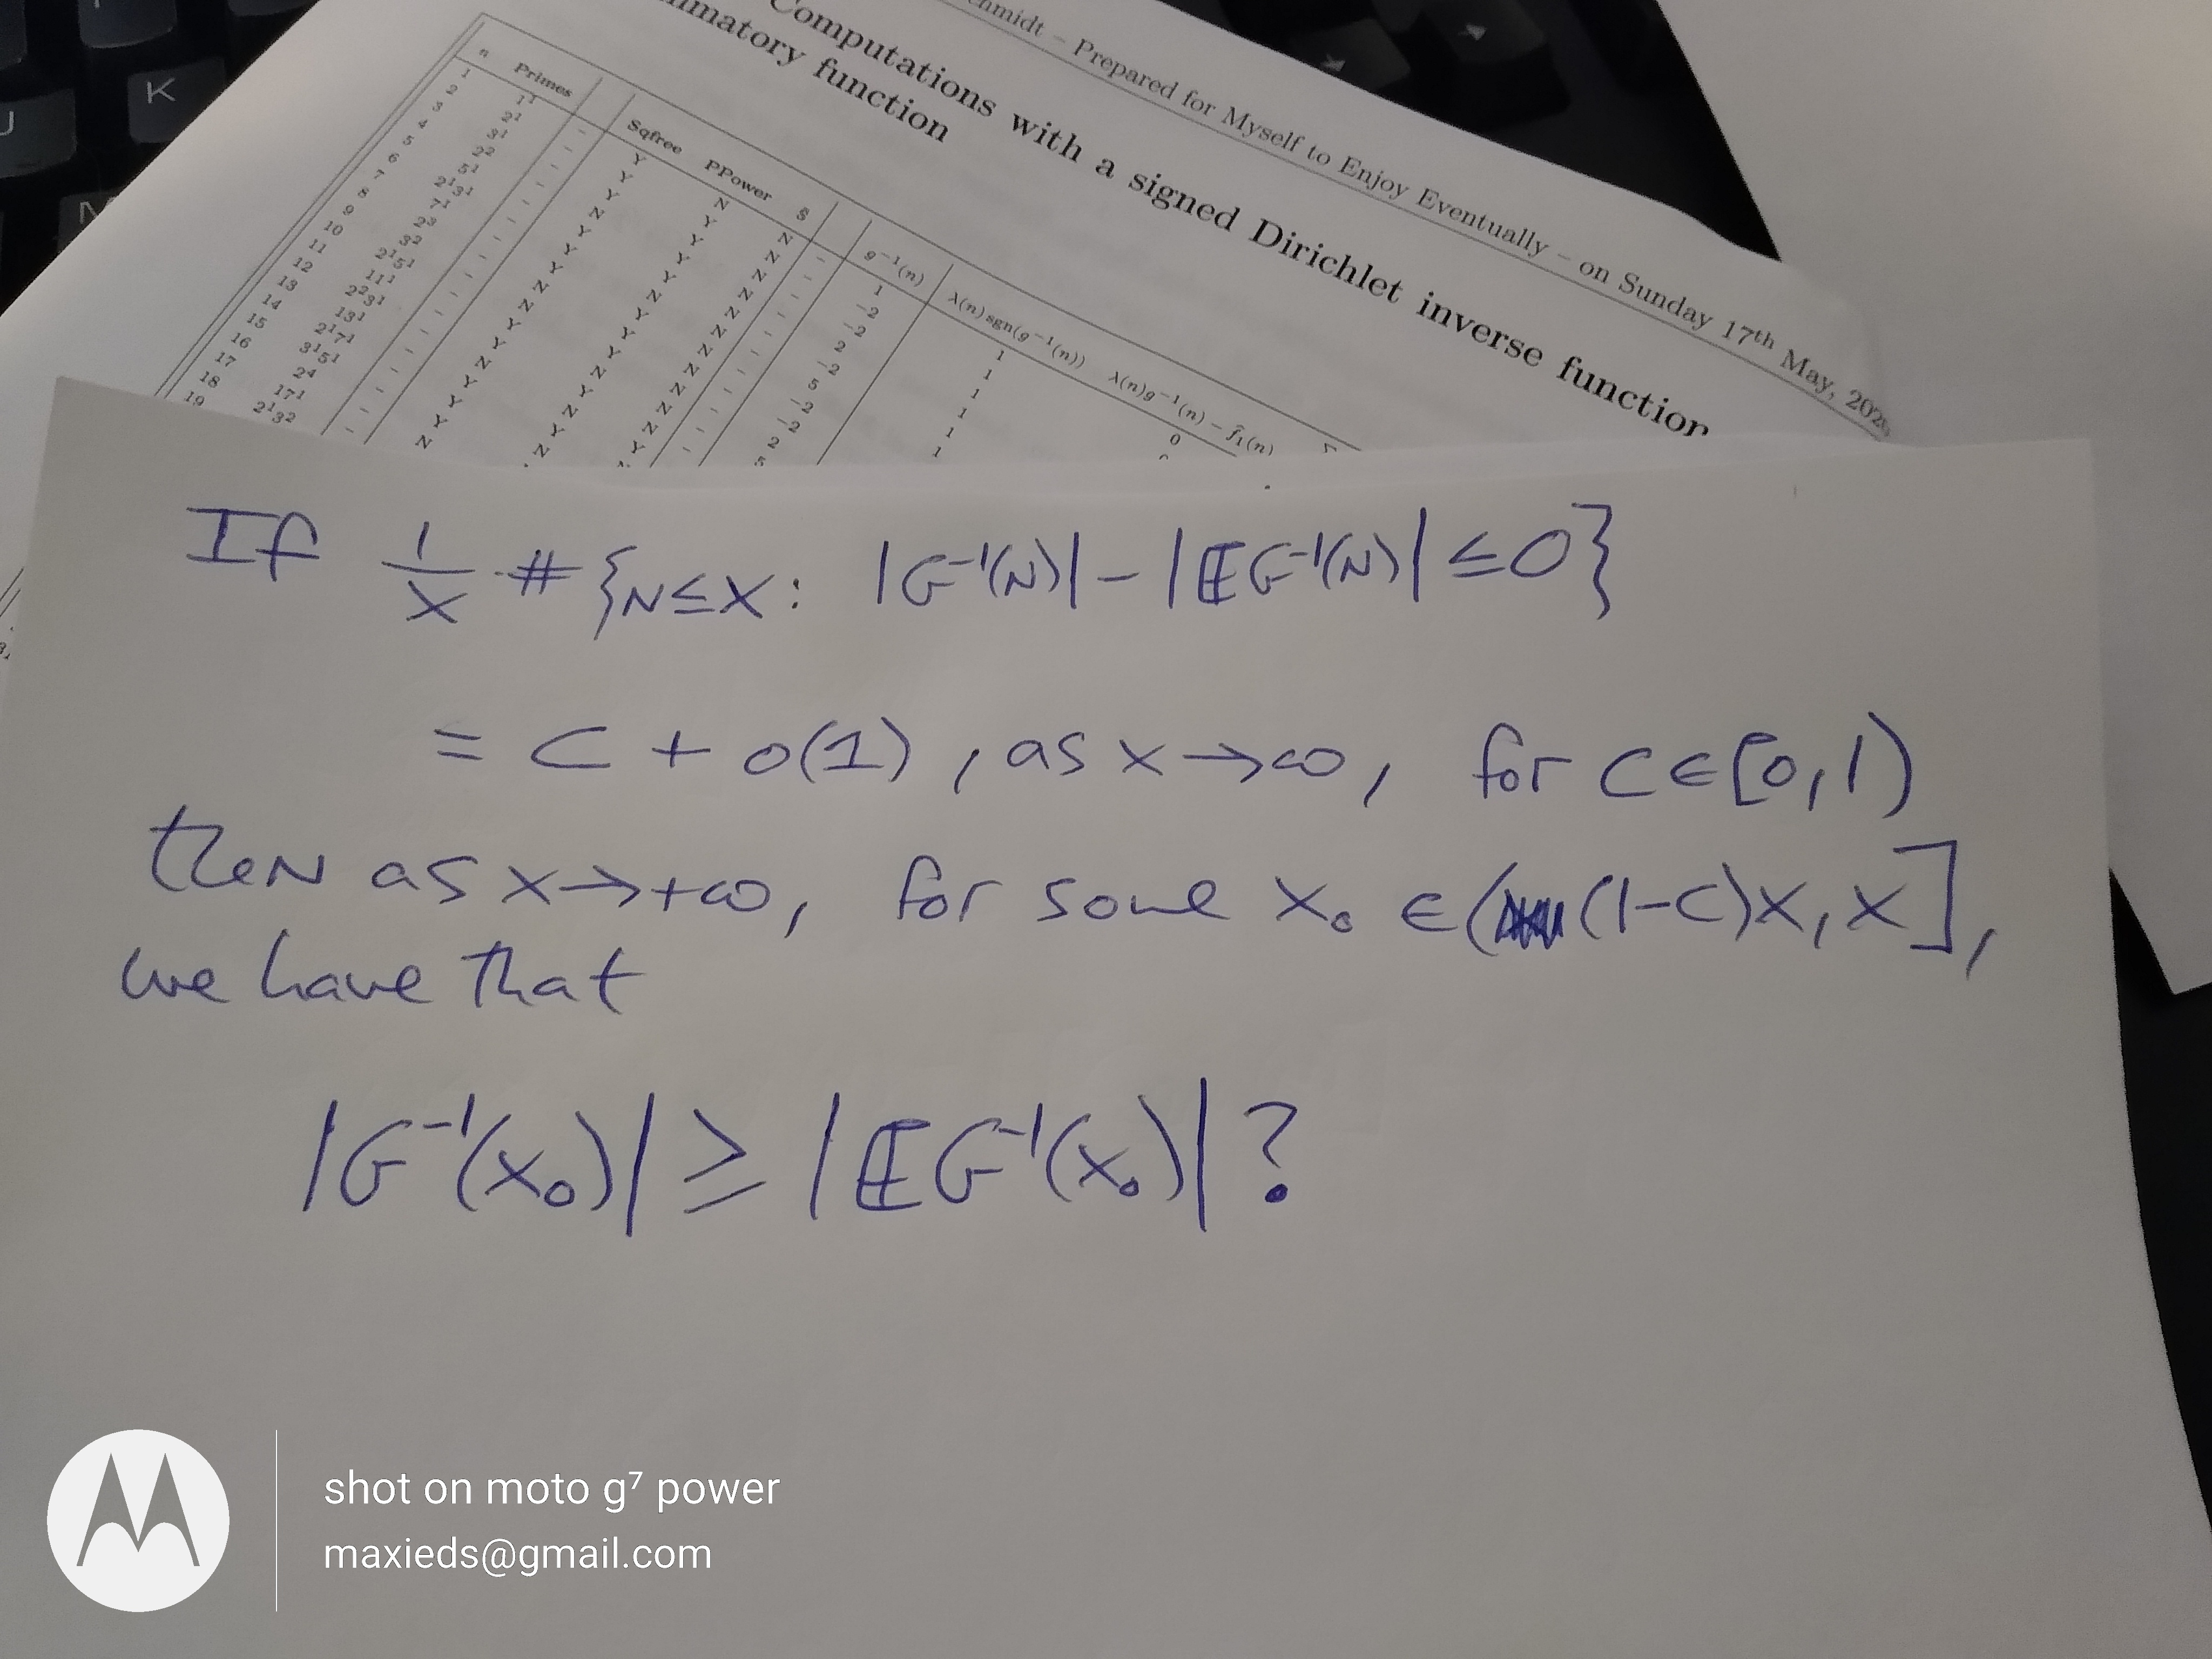 K
chmidt – Prepared for Myself to Enjoy Eventually – on Sunday 17th May, 202
Computations with a signed Dirichlet inverse function
mmatory function
n Primes Sqfree PPower S g⁻¹(n) λ(n)sgn(g⁻¹(n)) λ(n)g⁻¹(n) − f̂₁(n)
1 1¹
2 2¹
3 3¹
4 2²
5 5¹
6 2¹3¹
7 7¹
8 2³
9 3²
10 2¹5¹
11 11¹
12 2²3¹
13 13¹
14 2¹7¹
15 3¹5¹
16 2⁴
17 17¹
18 2¹3²
19
If 1/x · # {N≤x: |G⁻¹(N)| − |𝔼G⁻¹(N)| ≤ 0}
= C + o(1), as x→∞, for C∈[0,1)
then as x→+∞, for some x₀ ∈ ((1−C)x, x],
we have that
|G⁻¹(x₀)| ≥ |𝔼G⁻¹(x₀)|?
shot on moto g⁷ power
maxieds@gmail.com